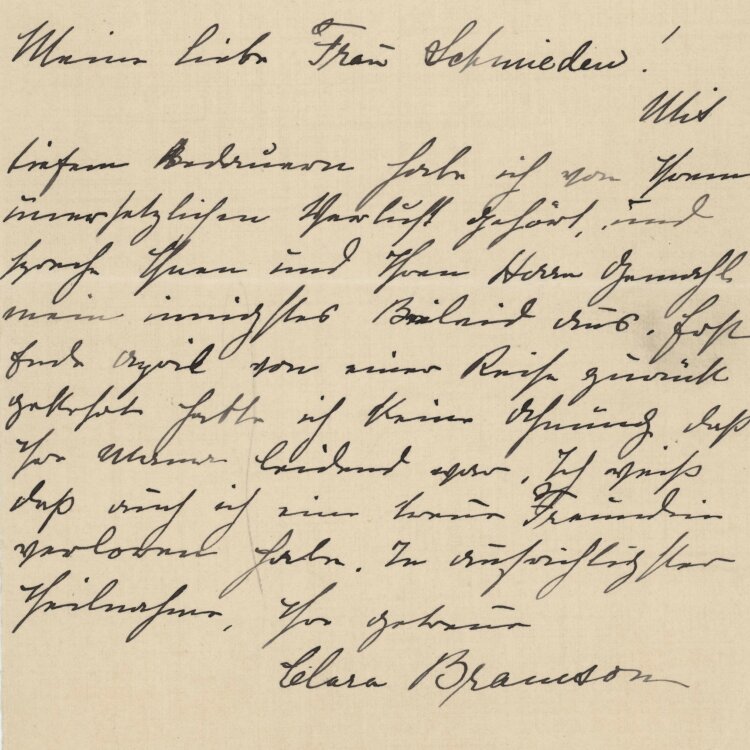 Meine liebe Frau Schmieden!
Mit
tiefem Bedauern habe ich von Ihrem
unersetzlichen Verlust gehört, und
spreche Ihnen und Ihren Herrn Gemahl
mein innigstes Beileid aus. Erst
Ende April von einer Reise zurück
gekehrt hatte ich keine Ahnung daß
Ihre Mama leidend war. Ich weiß
daß auch ich eine treue Freundin
verloren habe. In aufrichtigster
Theilnahme, Ihre getreue
Clara Bramson